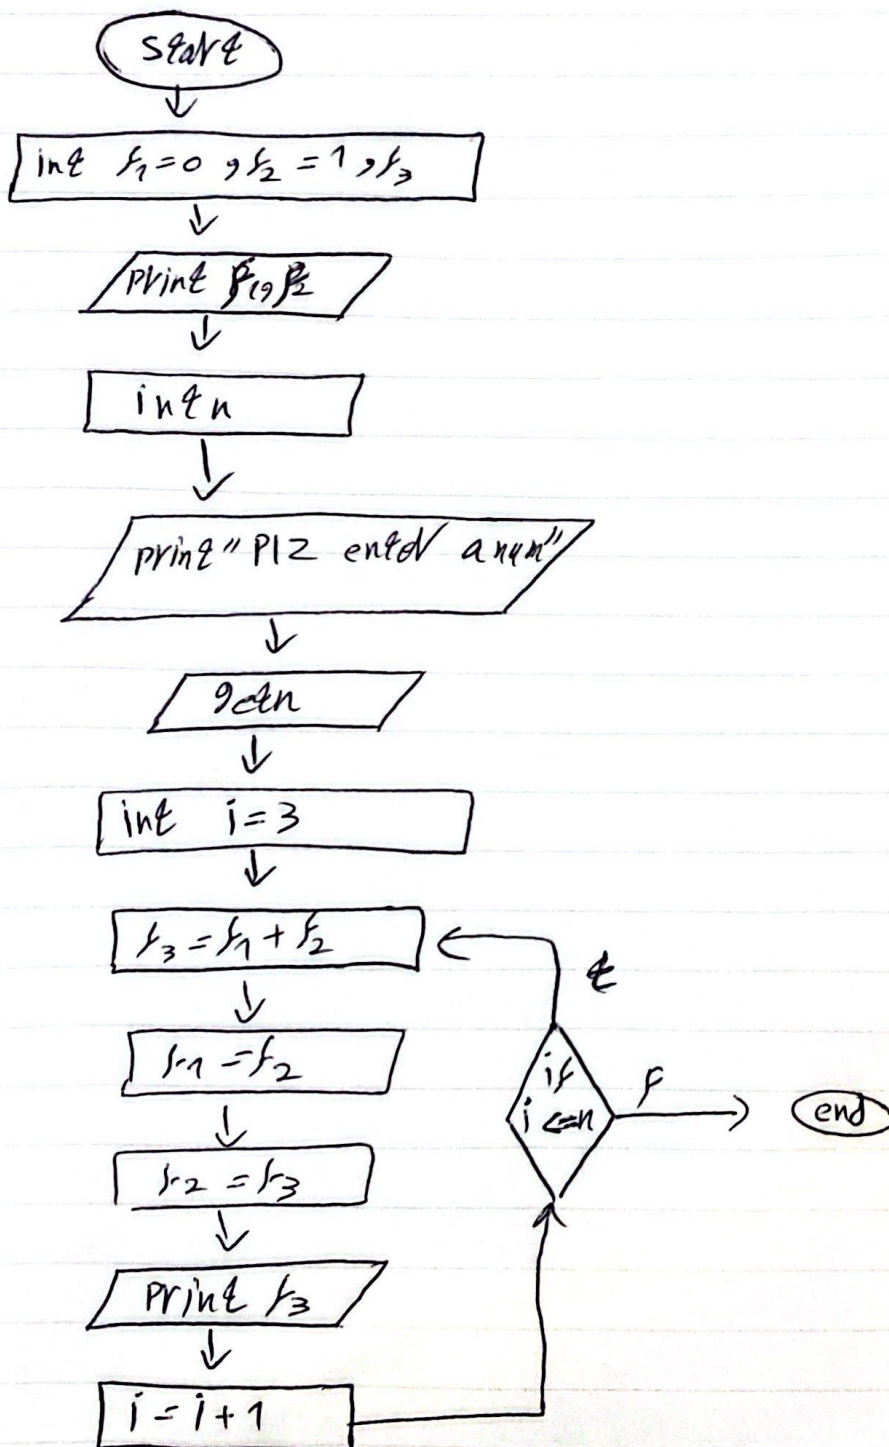 start
int f1=0, f2=1, f3
print f1, f2
int n
print "Plz enter a num"
get n
int i=3
f3=f1+f2
f1=f2
f2=f3
print f3
i=i+1
t
if
i<=n
F
end